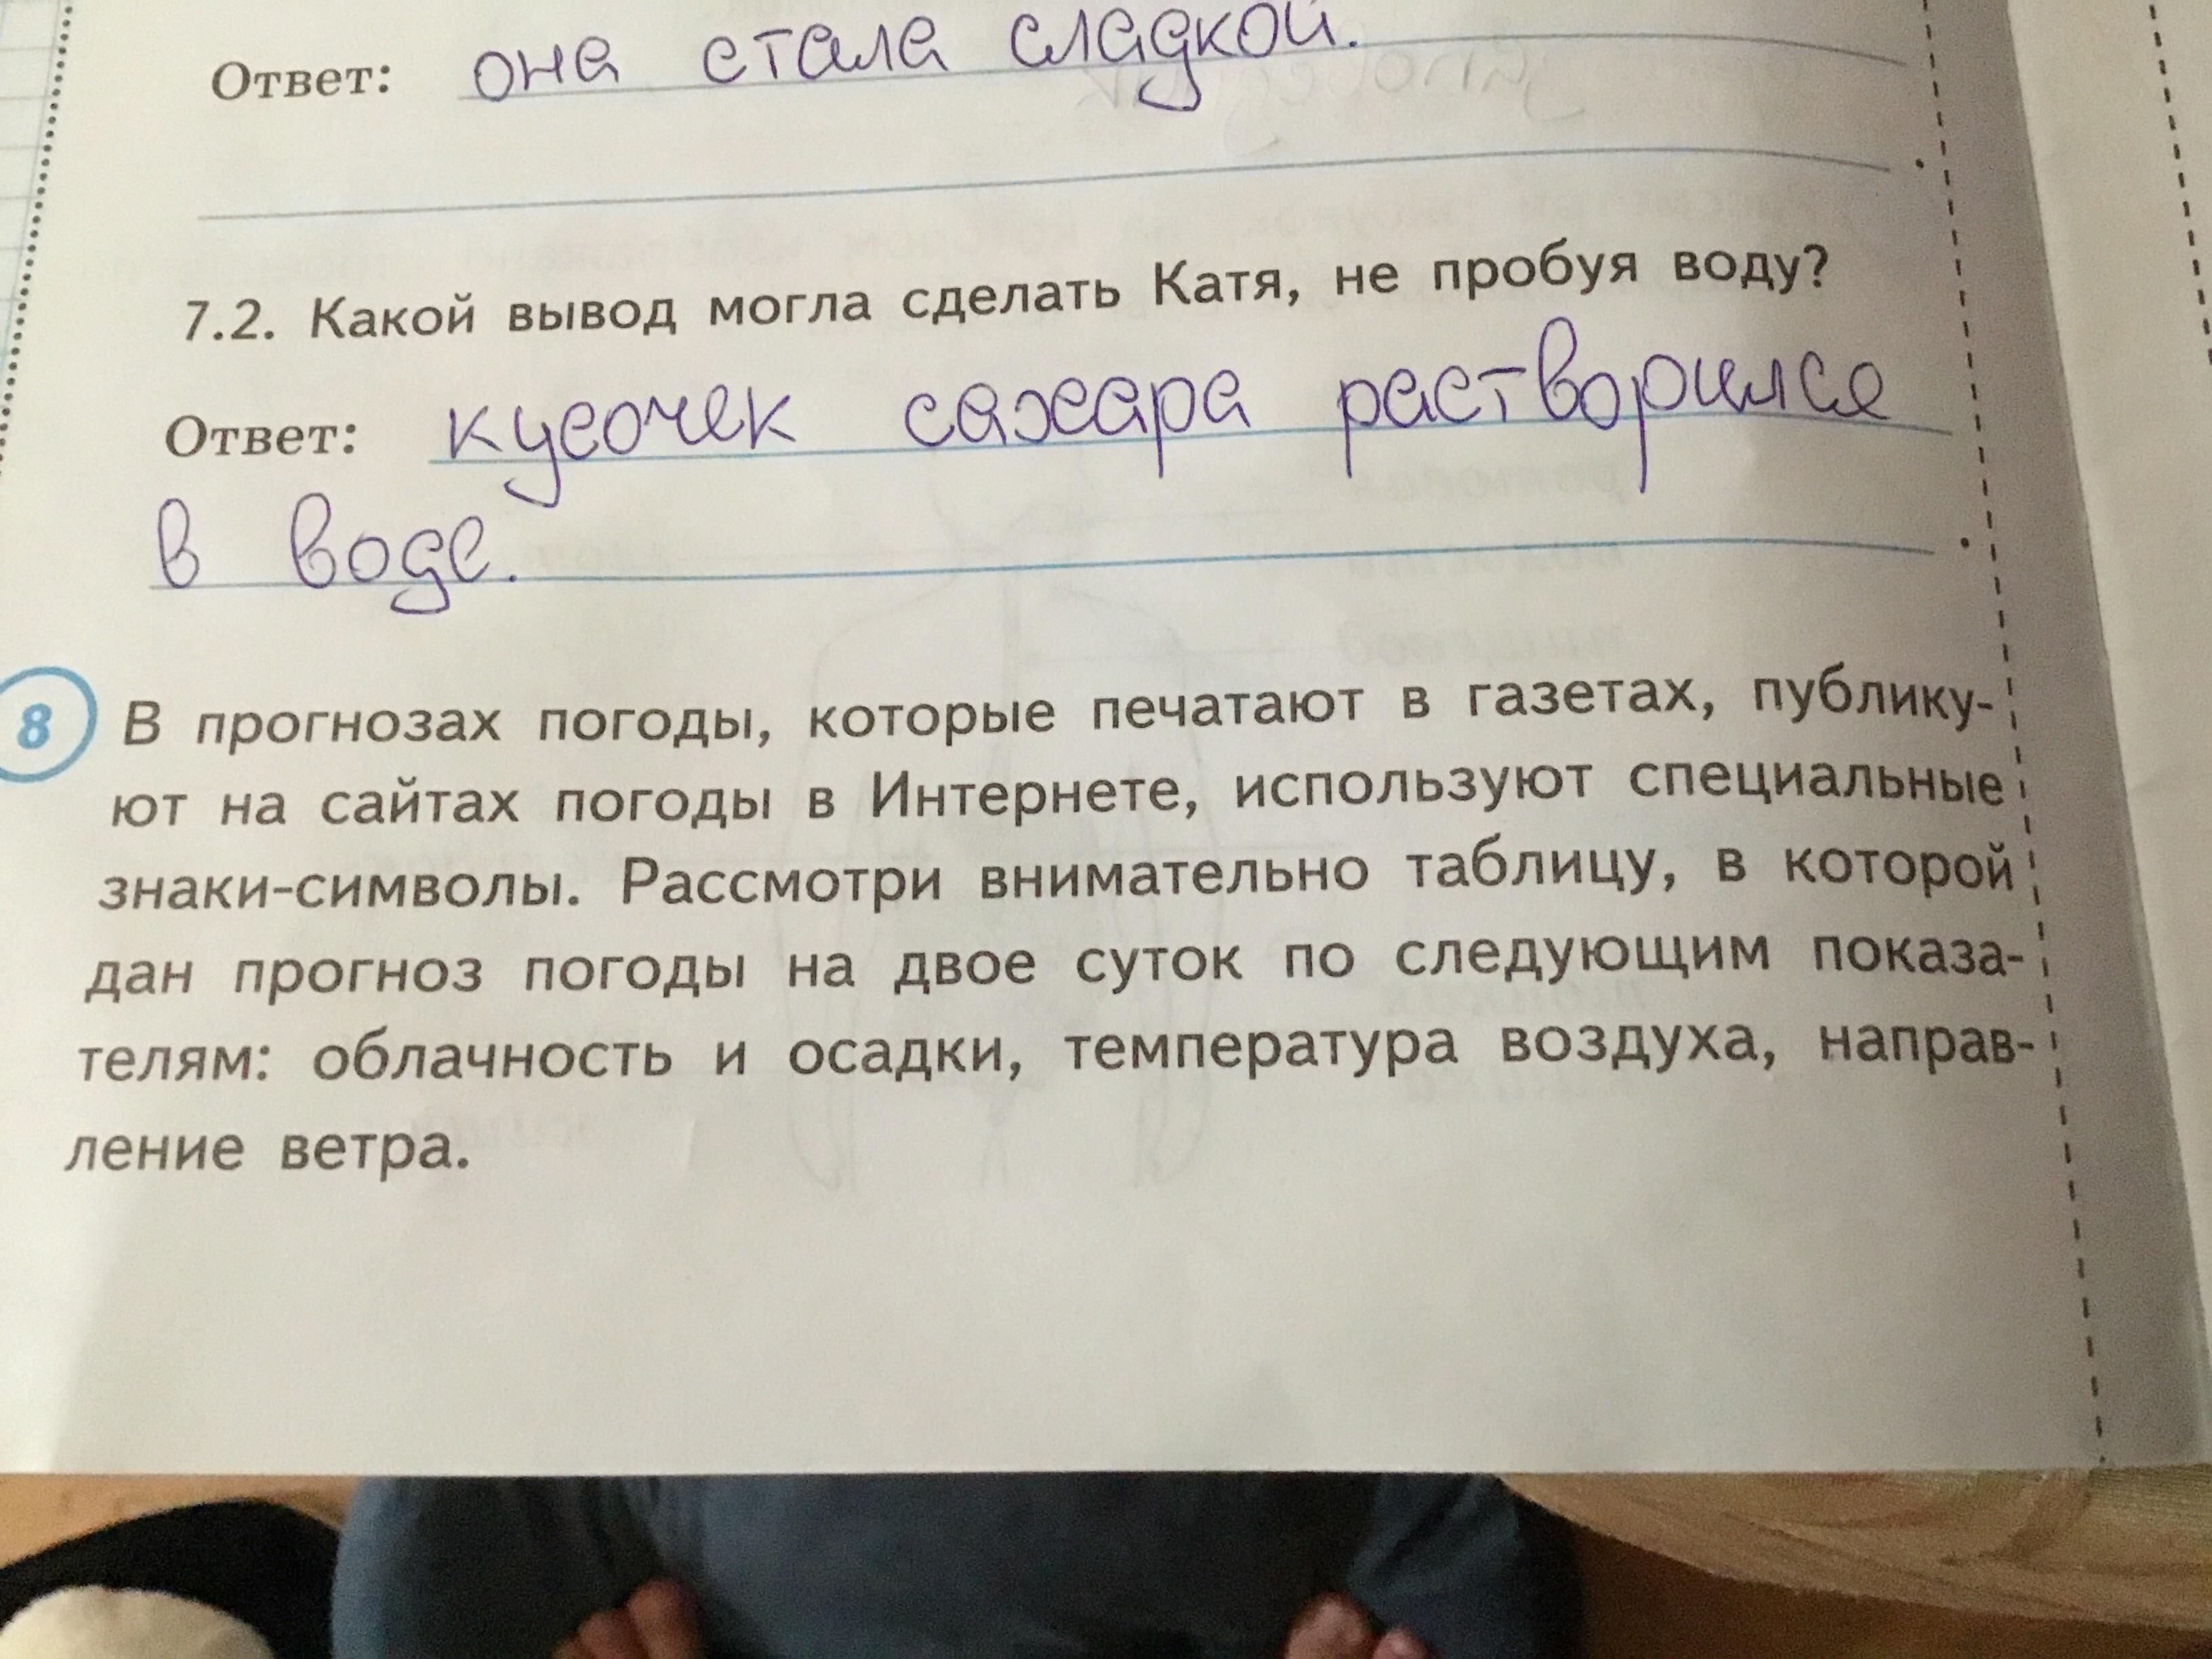 Ответ: она стала сладкой.
7.2. Какой вывод могла сделать Катя, не пробуя воду?
Ответ: кусочек сахара растворился
в воде.
8 В прогнозах погоды, которые печатают в газетах, публику-
ют на сайтах погоды в Интернете, используют специальные
знаки-символы. Рассмотри внимательно таблицу, в которой
дан прогноз погоды на двое суток по следующим показа-
телям: облачность и осадки, температура воздуха, направ-
ление ветра.